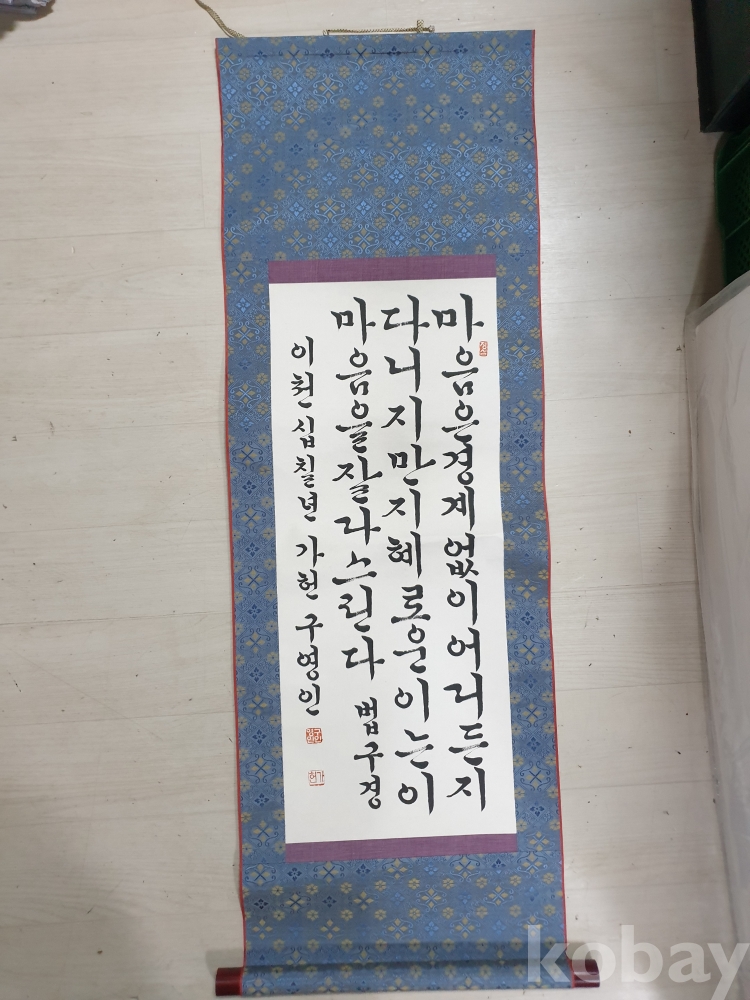 마음은경계없이어디든지
다니지만지혜로운이는이
마음을잘다스린다 법구경
이천십칠년 가헌 구영인
kobay